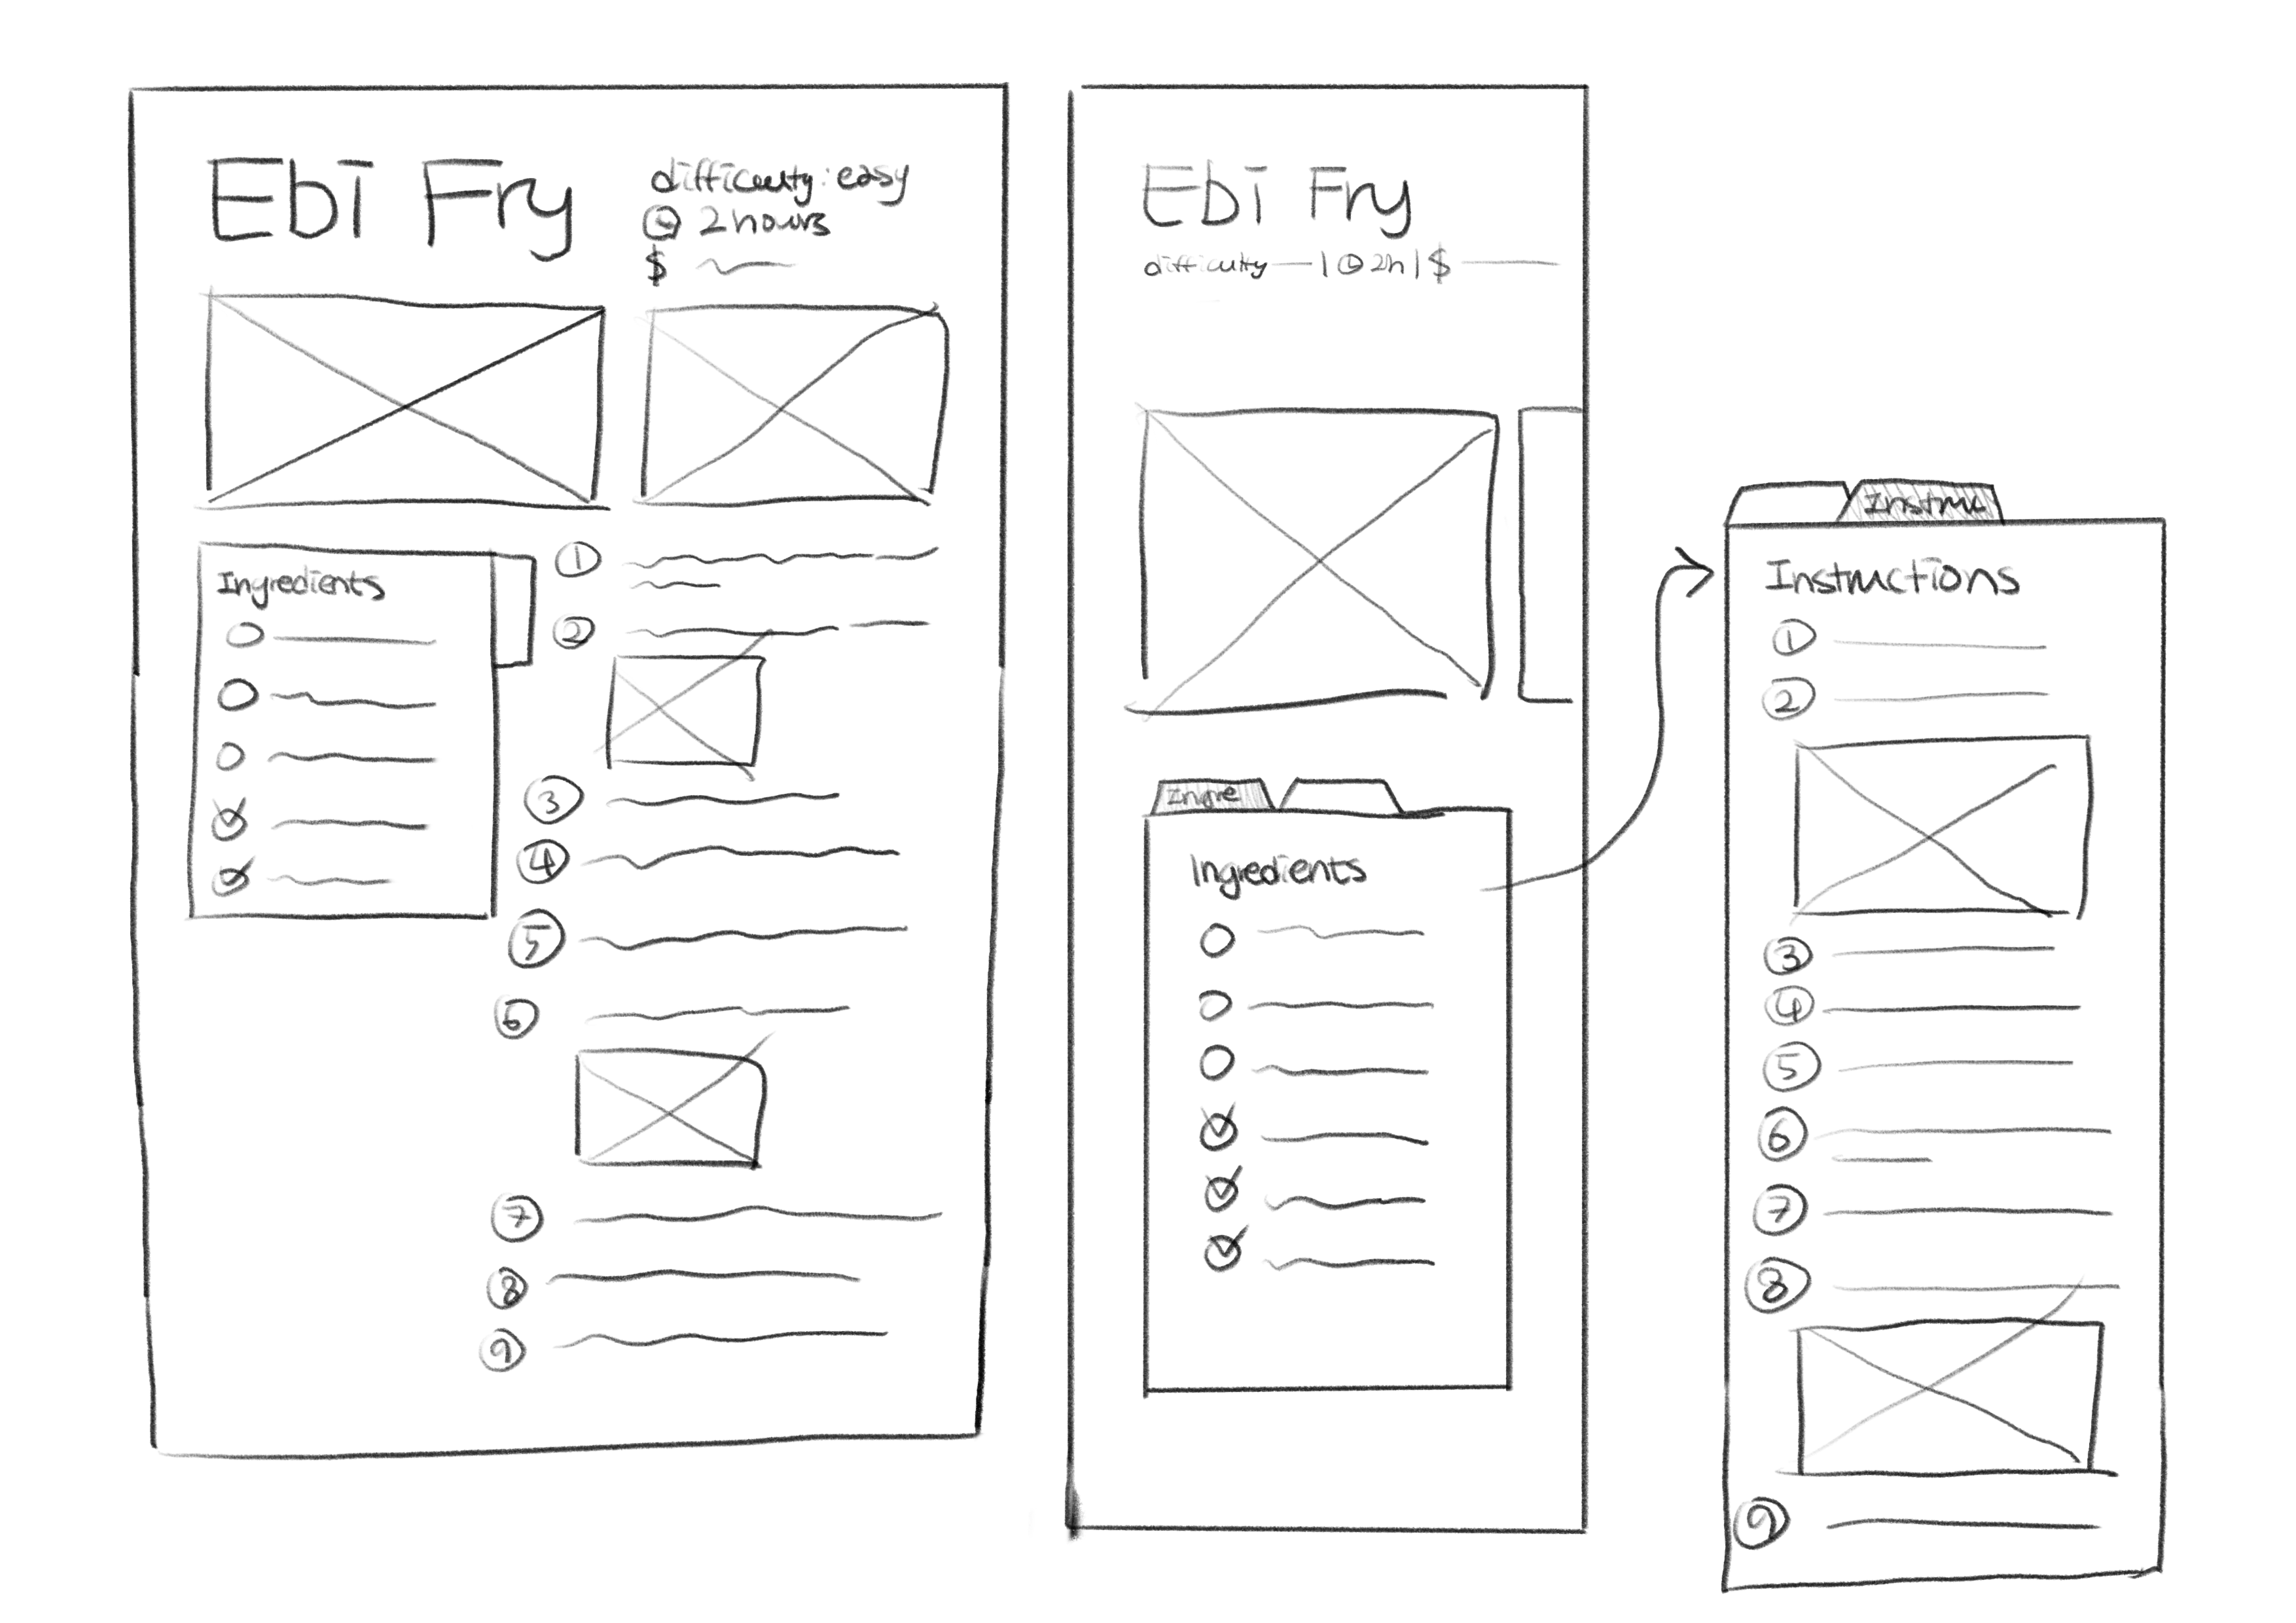 Ebi Fry
difficulty: easy
2 hours
$
Ingredients
1
2
3
4
5
6
7
8
9
Ebi Fry
difficulty — | 2h | $
Ingre
Ingredients
Instruc
Instructions
1
2
3
4
5
6
7
8
9